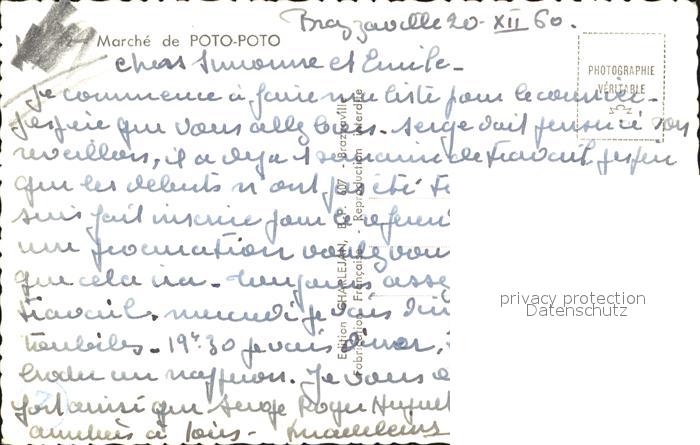 Brazzaville 20-XII 60.
12 - Marché de POTO-POTO
chers Simonne et Emile -
PHOTOGRAPHIE
VÉRITABLE
je commence à faire ma liste pour le courrier -
J'espère que vous allez bien. Serge doit penser à son
reveillon, il a déjà 1 semaine de travail j'espère
que les débuts n'ont pas été
suis fait inscrire pour le
une procuration voulez vous
que cela ira - toujours
travail. mercredi je vais
19h30 je vais diner,
un napperon. Je vous
fort ainsi que Serge Roger
amitiés à
Edition CHARLEJAN, B.P. 607 - Brazzaville
Fabrication Française - Reproduction interdite
privacy protection
Datenschutz